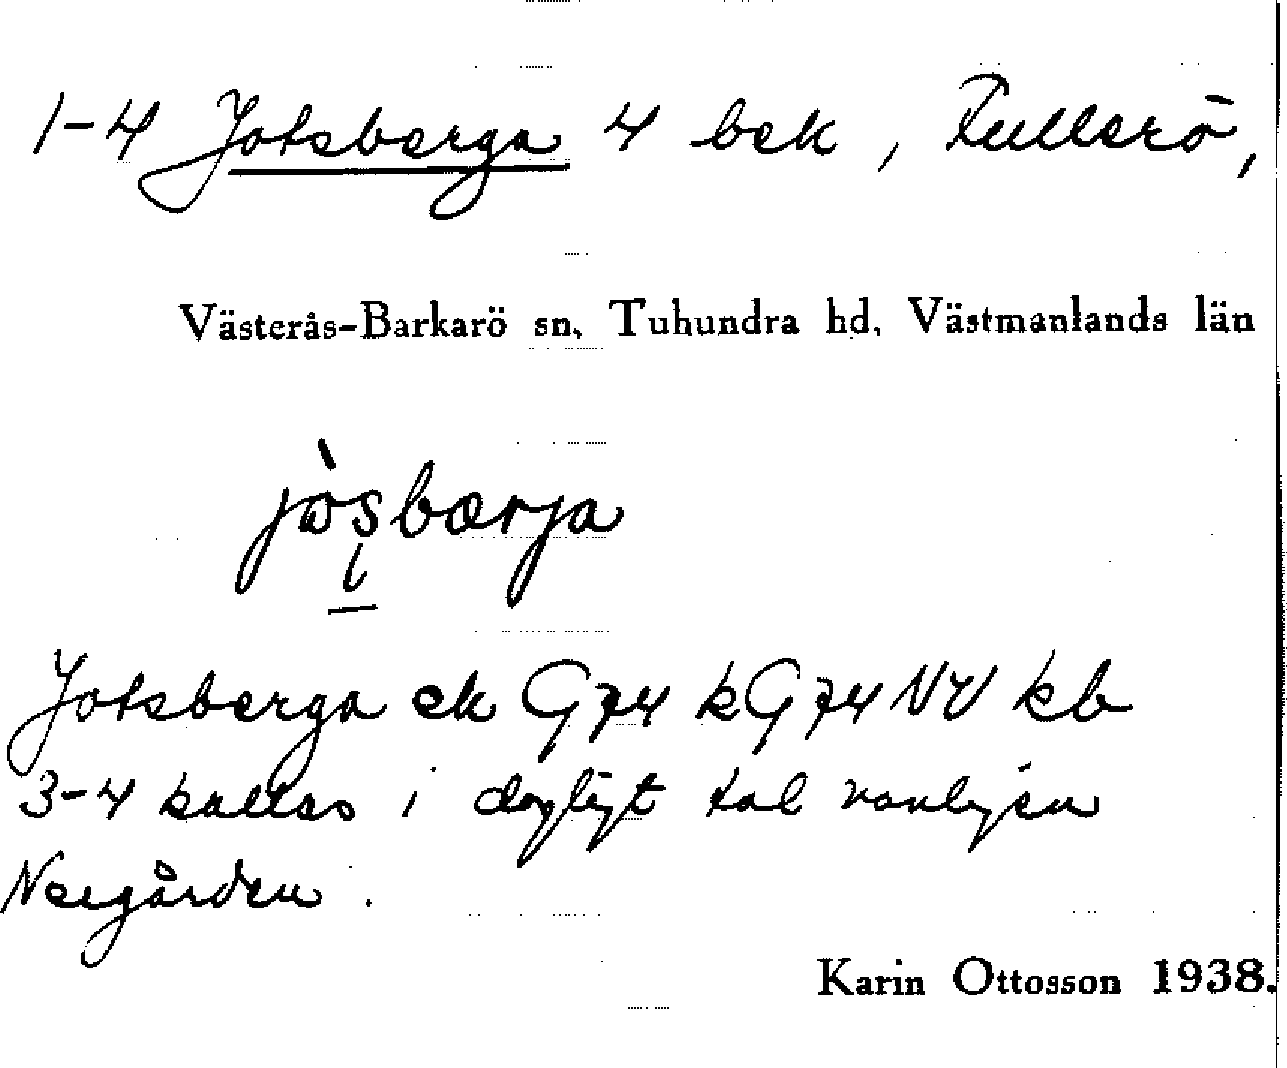 1-4 Jotsberga 4 bek, Fullerö,
Västerås-Barkarö sn, Tuhundra hd, Västmanlands län
jòsbærja
Jotsberga ek G74 kG74 NV kb
3-4 kallas i dagligt tal vanligen
Nergården.
Karin Ottosson 1938.